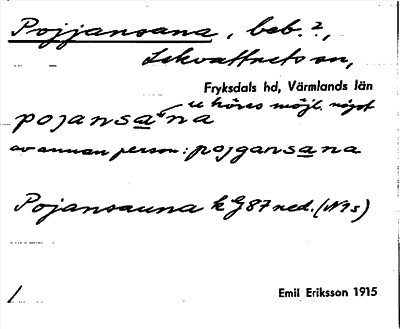 Pojjansana, beb.?,
Lekvattnets sn,
Fryksdals hd, Värmlands län
u höres möjl. något
pojansana
av annan person: pojgansana
Pojansauna k G87 ned. (N 1s)
/
Emil Eriksson 1915